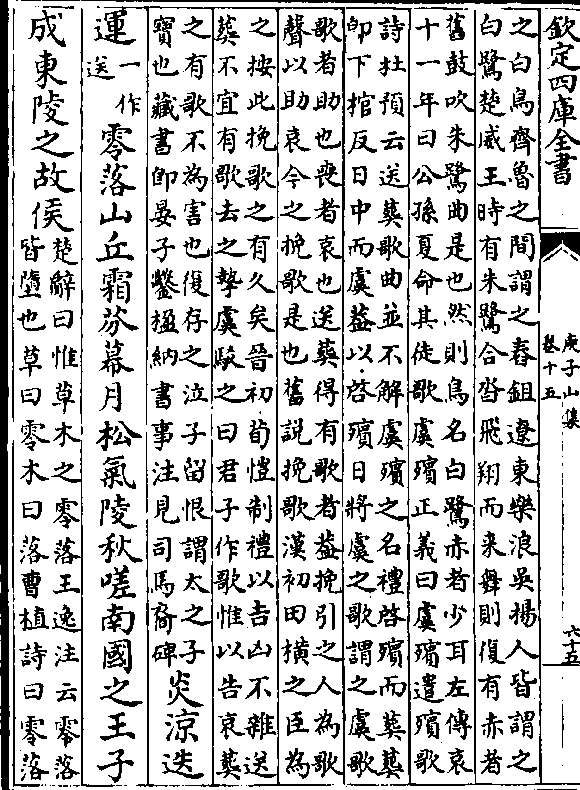 欽定四庫全書
庚子山集
卷十五
六十五
之白鳥齊魯之間謂之舂鉏遼東樂浪吳揚人皆謂之
白鷺楚威王時有朱鷺合沓飛翔而来舞則復有赤者
舊鼓吹朱鷺曲是也然則鳥名白鷺赤者少耳左傳哀
十一年曰公孫夏命其徒歌虞殯正義曰虞殯遣殯歌
詩杜預云送葬歌曲並不解虞殯之名禮啓殯而葬葬
卽下棺反日中而虞葢以啓殯日將虞之歌謂之虞歌
歌者助也喪者哀也送葬得有歌者葢挽引之人為歌
聲以助哀今之挽歌是也舊說挽歌漢初田橫之臣為
之按此挽歌之有久矣晉初荀愷制禮以吉凶不雜送
葬不宜有歌去之摯虞駁之曰君子作歌惟以告哀葬
之有歌不為害也復存之泣子留恨謂太之子
寶也藏書卽晏子鑿楹納書事注見司馬裔碑
炎涼迭
運一作送零落山丘霜芬幕月松氣陵秋嗟南國之王子
成東陵之故侯
楚辭曰惟草木之零落王逸注云零落
皆墮也草曰零木曰落曹植詩曰零落